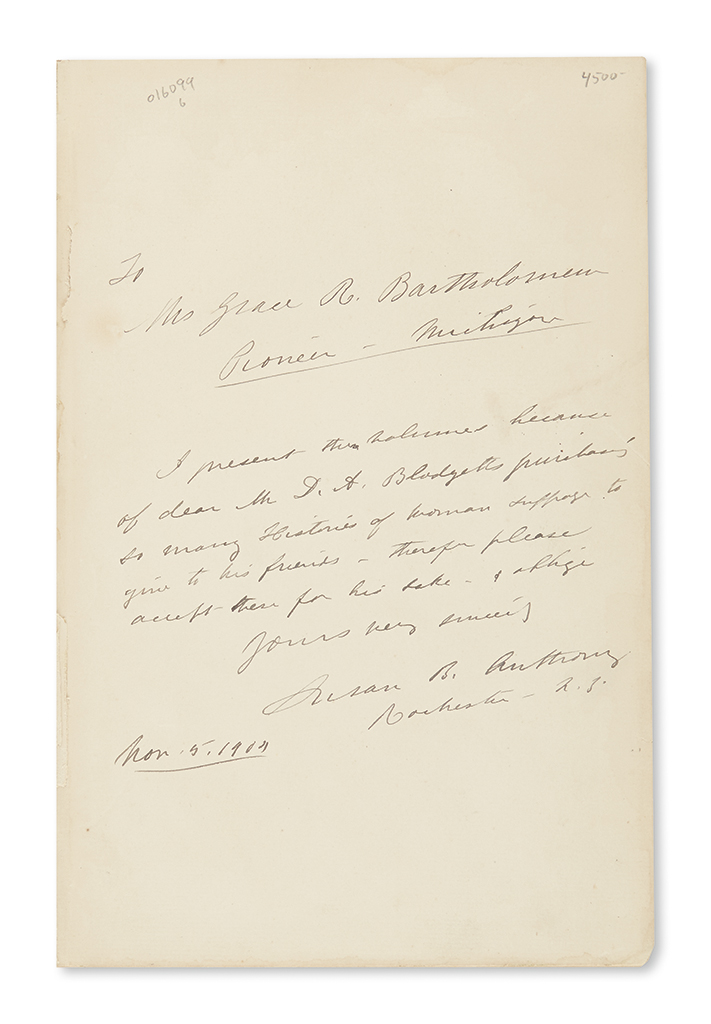 016099
6
4500-
To
Mrs Grace R. Bartholomew
Pioneer - Michigan
I present these volumes because
of dear Mr D. A. Blodgett's purchasing
so many Histories of Woman Suffrage to
give to his friends - therefore please
accept these for his sake - & oblige
Yours very sincerely
Susan B. Anthony
Rochester - N. Y.
Nov. 5. 1904